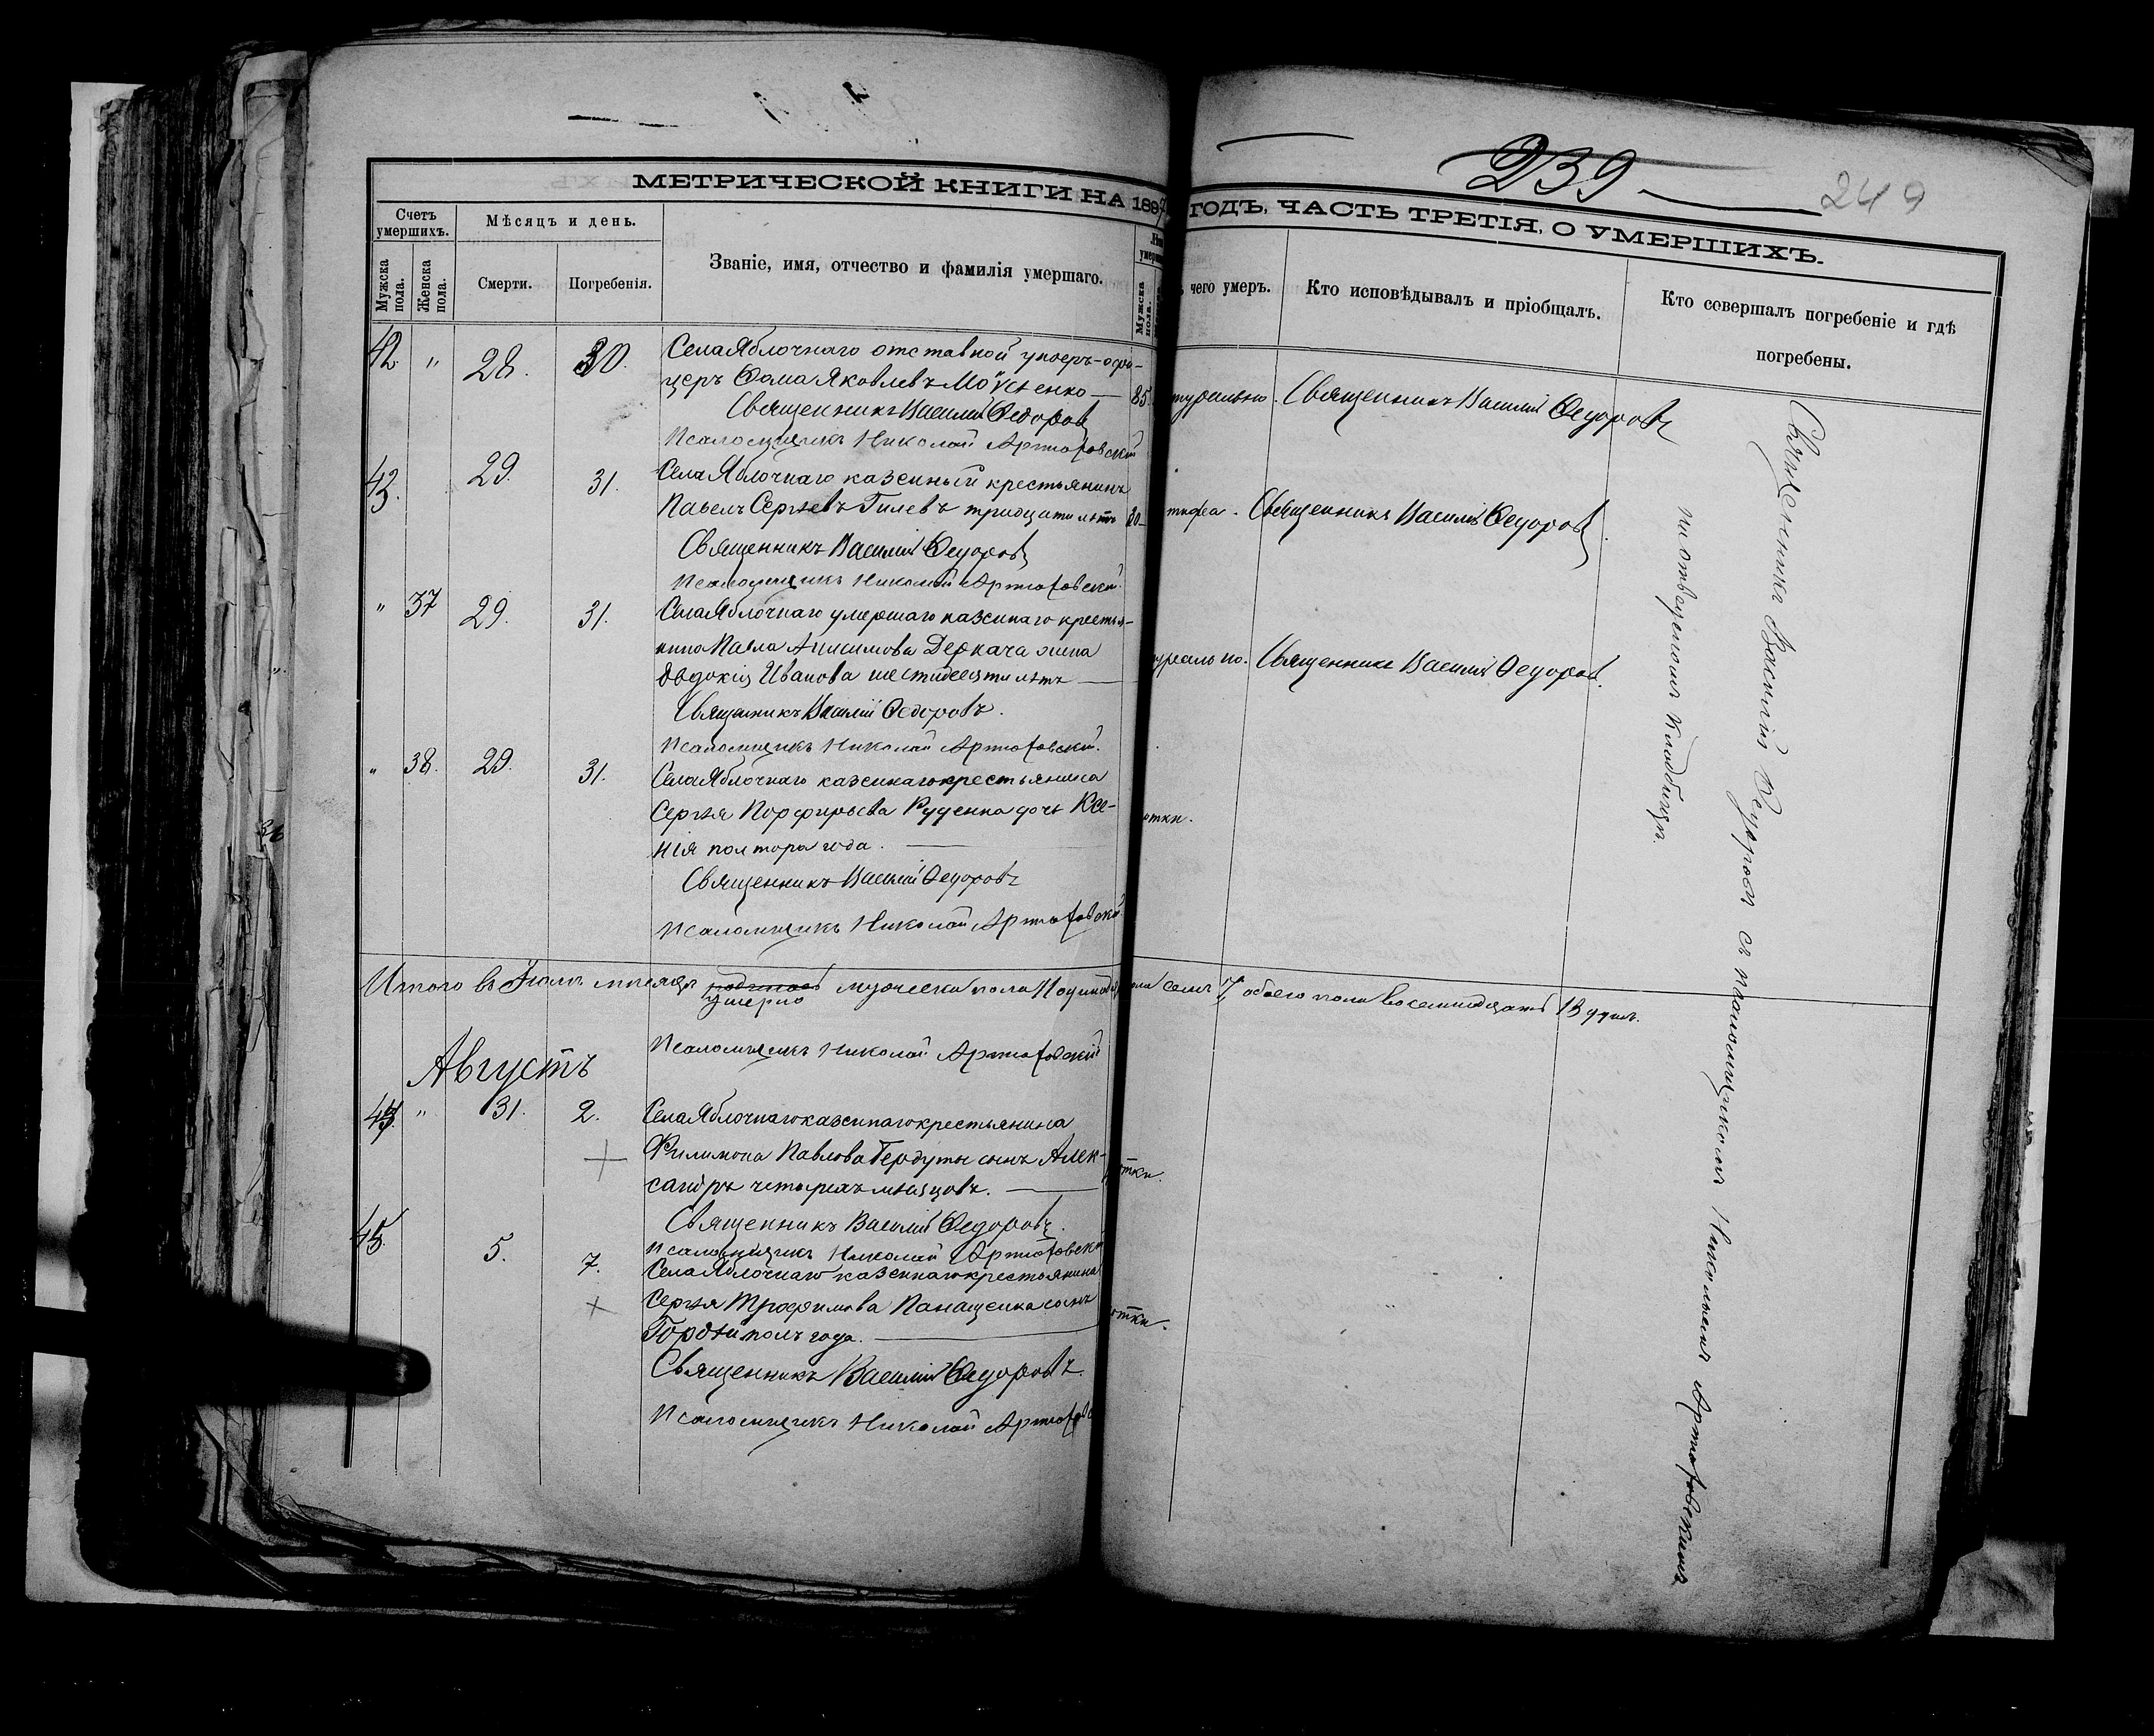 239
249
МЕТРИЧЕСКОЙ КНИГИ НА 189 ГОДЪ, ЧАСТЬ ТРЕТІЯ, О УМЕРШИХЪ.
Счетъ умершихъ.
Мужска пола.
Женска пола.
Мѣсяцъ и день.
Смерти.
Погребенія.
Званіе, имя, отчество и фамилія умершаго.
Мужска пола.
чего умеръ.
Кто исповѣдывалъ и пріобщалъ.
Кто совершалъ погребеніе и гдѣ погребены.
42 " 28. 30. Села Яблочнаго отставной унтеръ-офи-
церъ Фома Яковлевъ 85. Священникъ Василій Федоровъ
Священникъ Василій Федоровъ
Псаломщикъ Николай Артюховскій
43. 29. 31. Села Яблочнаго казенный крестьянинъ
Павелъ Сергѣевъ Гилевъ тридцати лѣтъ 30 тифа. Священникъ Василій Федоровъ
Священникъ Василій Федоровъ
Псаломщикъ Николай Артюховскій
" 37 29. 31. Села Яблочнаго умершаго казеннаго крестья-
нина Павла Анисимова Деркача жена
Евдокія Иванова шестидесяти лѣтъ Священникъ Василій Федоровъ.
Священникъ Василій Федоровъ.
Псаломщикъ Николай Артюховскій.
" 38. 29. 31. Села Яблочнаго казеннаго крестьянина
Сергѣя Порфирьева Руденка дочь Ксе-
нія полтора года.
Священникъ Василій Федоровъ
Псаломщикъ Николай Артюховскій
Итого въ Іюлѣ мѣсяцѣ умерло мужеска пола 11 семь 7, обоего пола восемнадцать 18 душъ.
Псаломщикъ Николай Артюховскій
Августъ
44. " 31. 2. Села Яблочнаго казеннаго крестьянина
Филимона Павлова сынъ Алек-
сандръ четырехъ мѣсяцовъ.
Священникъ Василій Федоровъ.
Псаломщикъ Николай Артюховскій
45. 5. 7. Села Яблочнаго казеннаго крестьянина
Сергѣя Трофимова Панащенка сынъ
Гордѣй полъ года.
Священникъ Василій Федоровъ.
Псаломщикъ Николай
Священникъ Василій Федоровъ съ псаломщикомъ Николаемъ Артюховскимъ
на отведенномъ кладбищѣ.